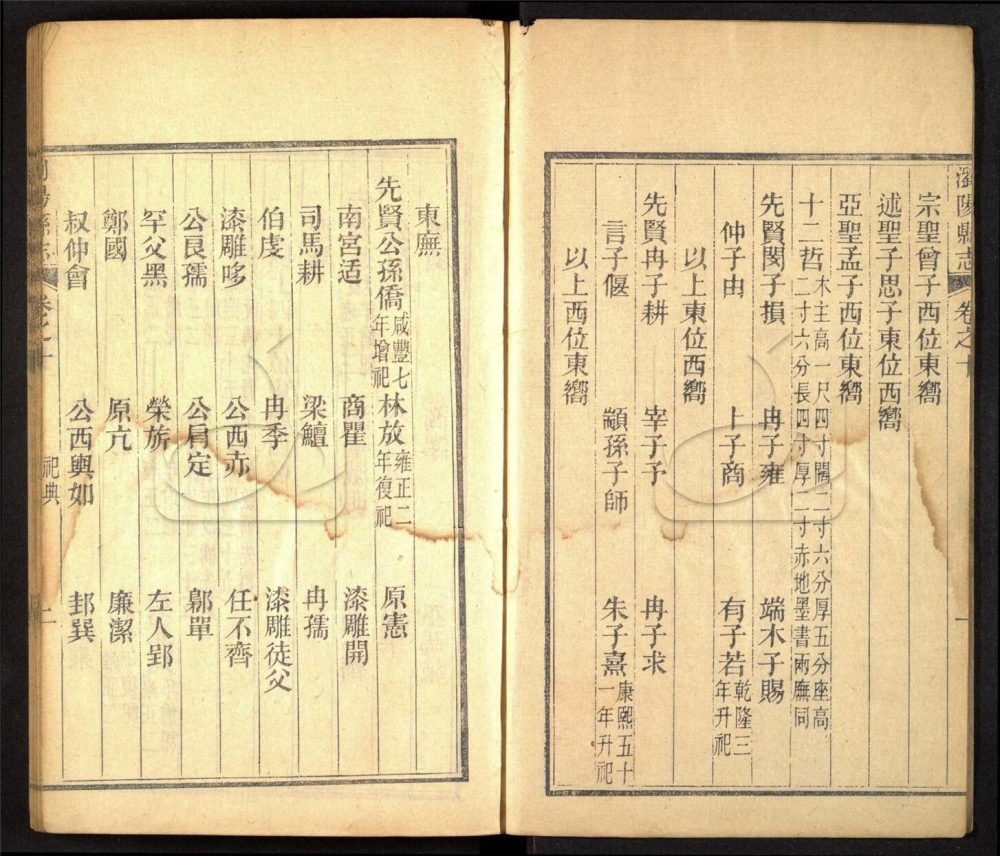 瀏陽縣志　卷之十　一
宗聖曾子西位東嚮
述聖子思子東位西嚮
亞聖孟子西位東嚮
十二哲木主高一尺四寸闊二寸六分厚五分座高二寸六分長四寸厚二寸赤地墨書兩廡同
先賢閔子損　冉子雍　端木子賜
仲子由　卜子商　有子若乾隆三年升祀
以上東位西嚮
先賢冉子耕　宰子予　冉子求
言子偃　顓孫子師　朱子熹康熙五十一年升祀
以上西位東嚮
東廡
先賢公孫僑咸豐七年增祀　林放雍正二年復祀　原憲
南宮适　商瞿　漆雕開
司馬耕　梁鱣　冉孺
伯虔　冉季　漆雕徒父
漆雕哆　公西赤　任不齊
公良孺　公肩定　鄡單
罕父黑　榮旂　左人郢
鄭國　原亢　廉潔
叔仲會　公西輿如　邽巽
陽縣志　卷之十　祀典　二